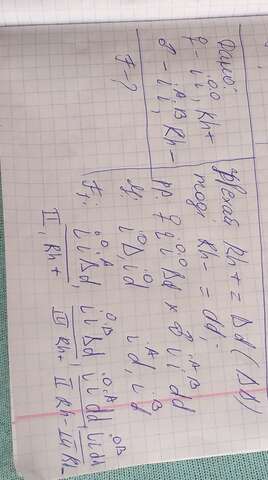 Дано:
♀ - i⁰i⁰, Rh+
♂ - iᴬiᴮ Rh-
F - ?
Rh+ = Dd (DD)
тогда Rh- = dd,
PP ♀ i⁰i⁰Dd × ♂ iᴬiᴮdd
G: i⁰D, i⁰d iᴬd, iᴮd
F₁: i⁰iᴬDd, i⁰iᴮDd, i⁰iᴬdd, i⁰iᴮdd
II, Rh+ III Rh+, II Rh- III Rh-